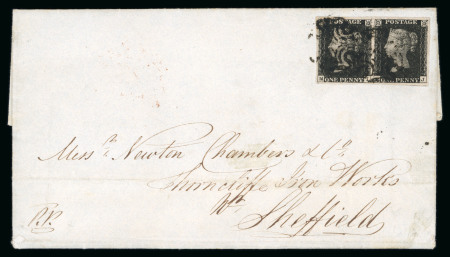 POSTAGE POSTAGE
ONE PENNY PENNY J
Mess.rs Newton Chambers & Co.
Thorncliffe Iron Works
Nr.
Sheffield
P.P.